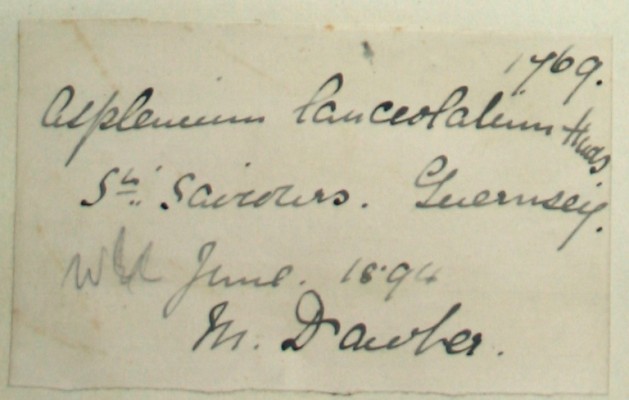 1769.
Asplenium lanceolatum Huds
St: Saviours. Guernsey.
June. 1894
M. Dawber.